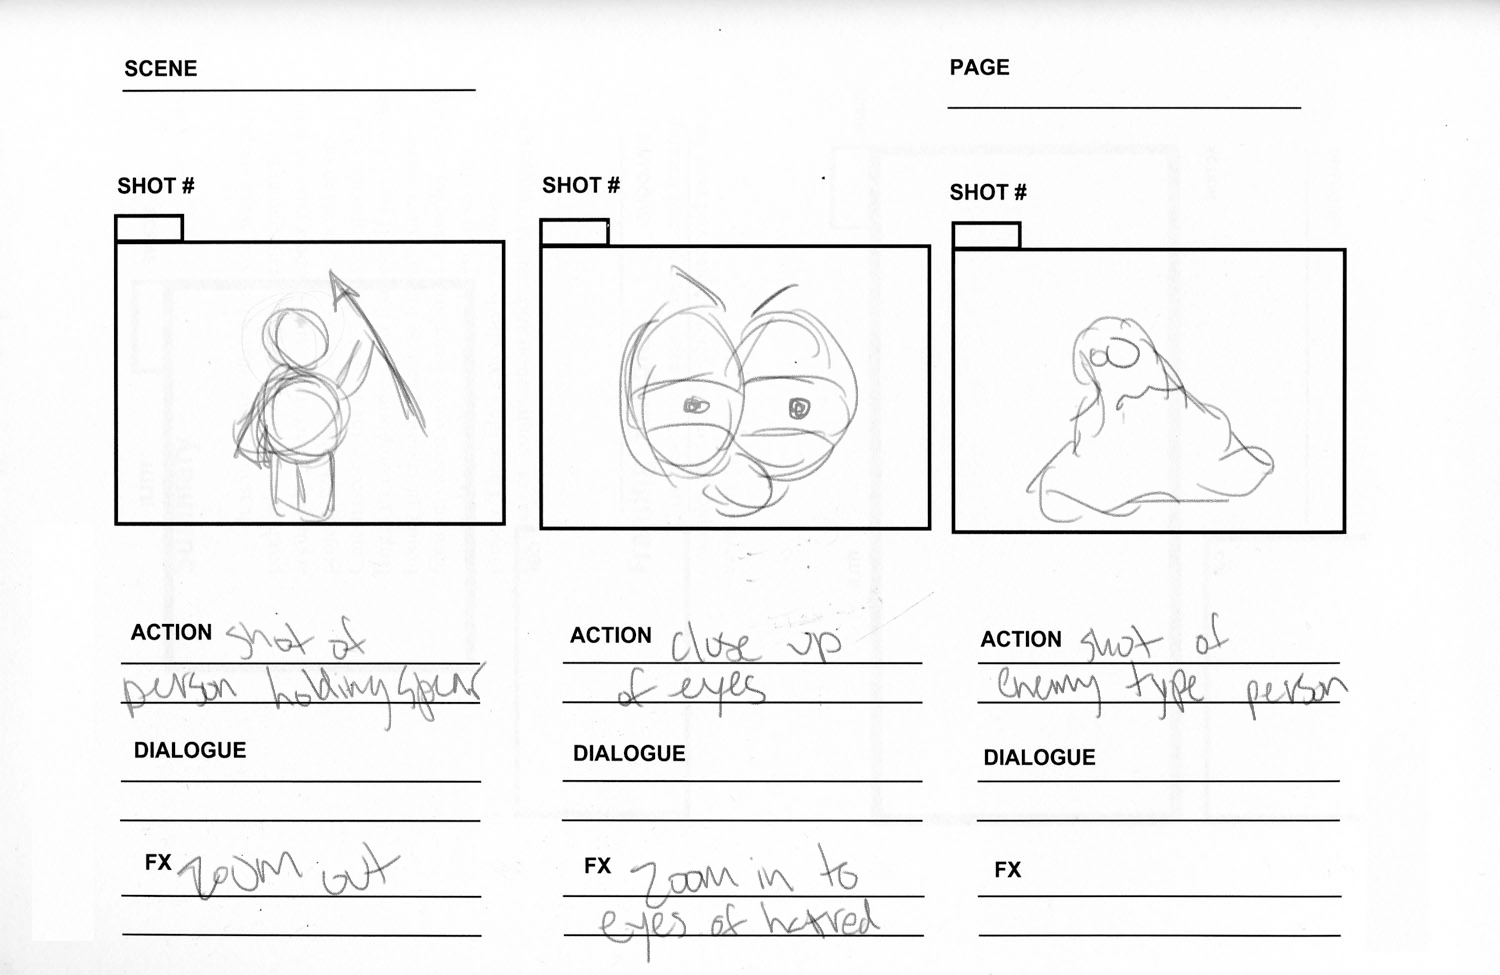 SCENE
PAGE
SHOT #
SHOT #
SHOT #
ACTION shot of
person holding spear
DIALOGUE
FX zoom out
ACTION close up
of eyes
DIALOGUE
FX zoom in to
eyes of hatred
ACTION shot of
enemy type person
DIALOGUE
FX